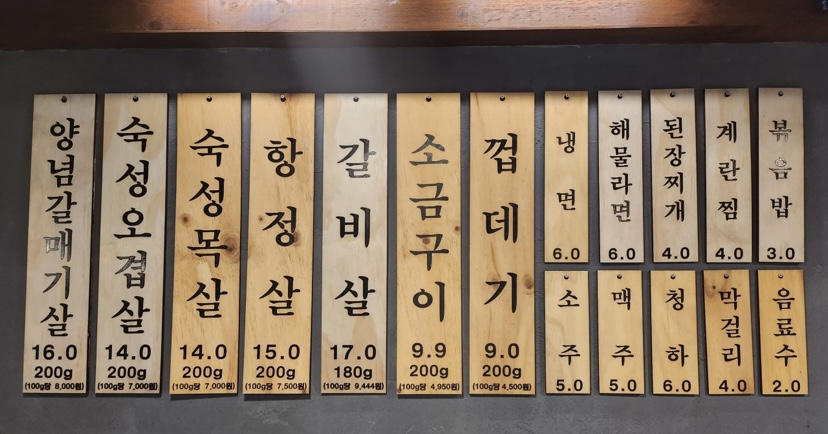 양념갈매기살
16.0
200g
(100g당 8,000원)
숙성오겹살
14.0
200g
(100g당 7,000원)
숙성목살
14.0
200g
(100g당 7,000원)
항정살
15.0
200g
(100g당 7,500원)
갈비살
17.0
180g
(100g당 9,444원)
소금구이
9.9
200g
(100g당 4,950원)
껍데기
9.0
200g
(100g당 4,500원)
냉면
6.0
해물라면
6.0
된장찌개
4.0
계란찜
4.0
볶음밥
3.0
소주
5.0
맥주
5.0
청하
6.0
막걸리
4.0
음료수
2.0